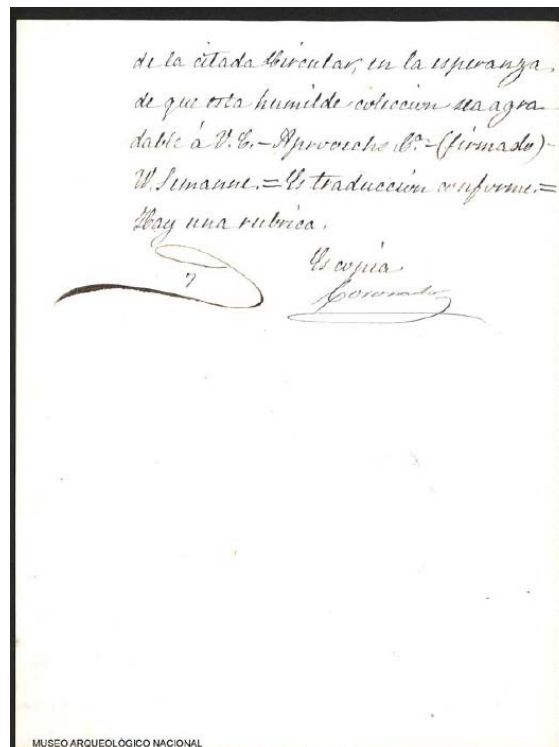 de la citada Circular, en la esperanza
de que esta humilde coleccion sea agra
dable á V. E.- Aprovecho &ª.- (firmado)-
W. Semanne.= Es traduccion conforme.=
Hay una rubrica.
Es copia
Coronado
MUSEO ARQUEOLÓGICO NACIONAL